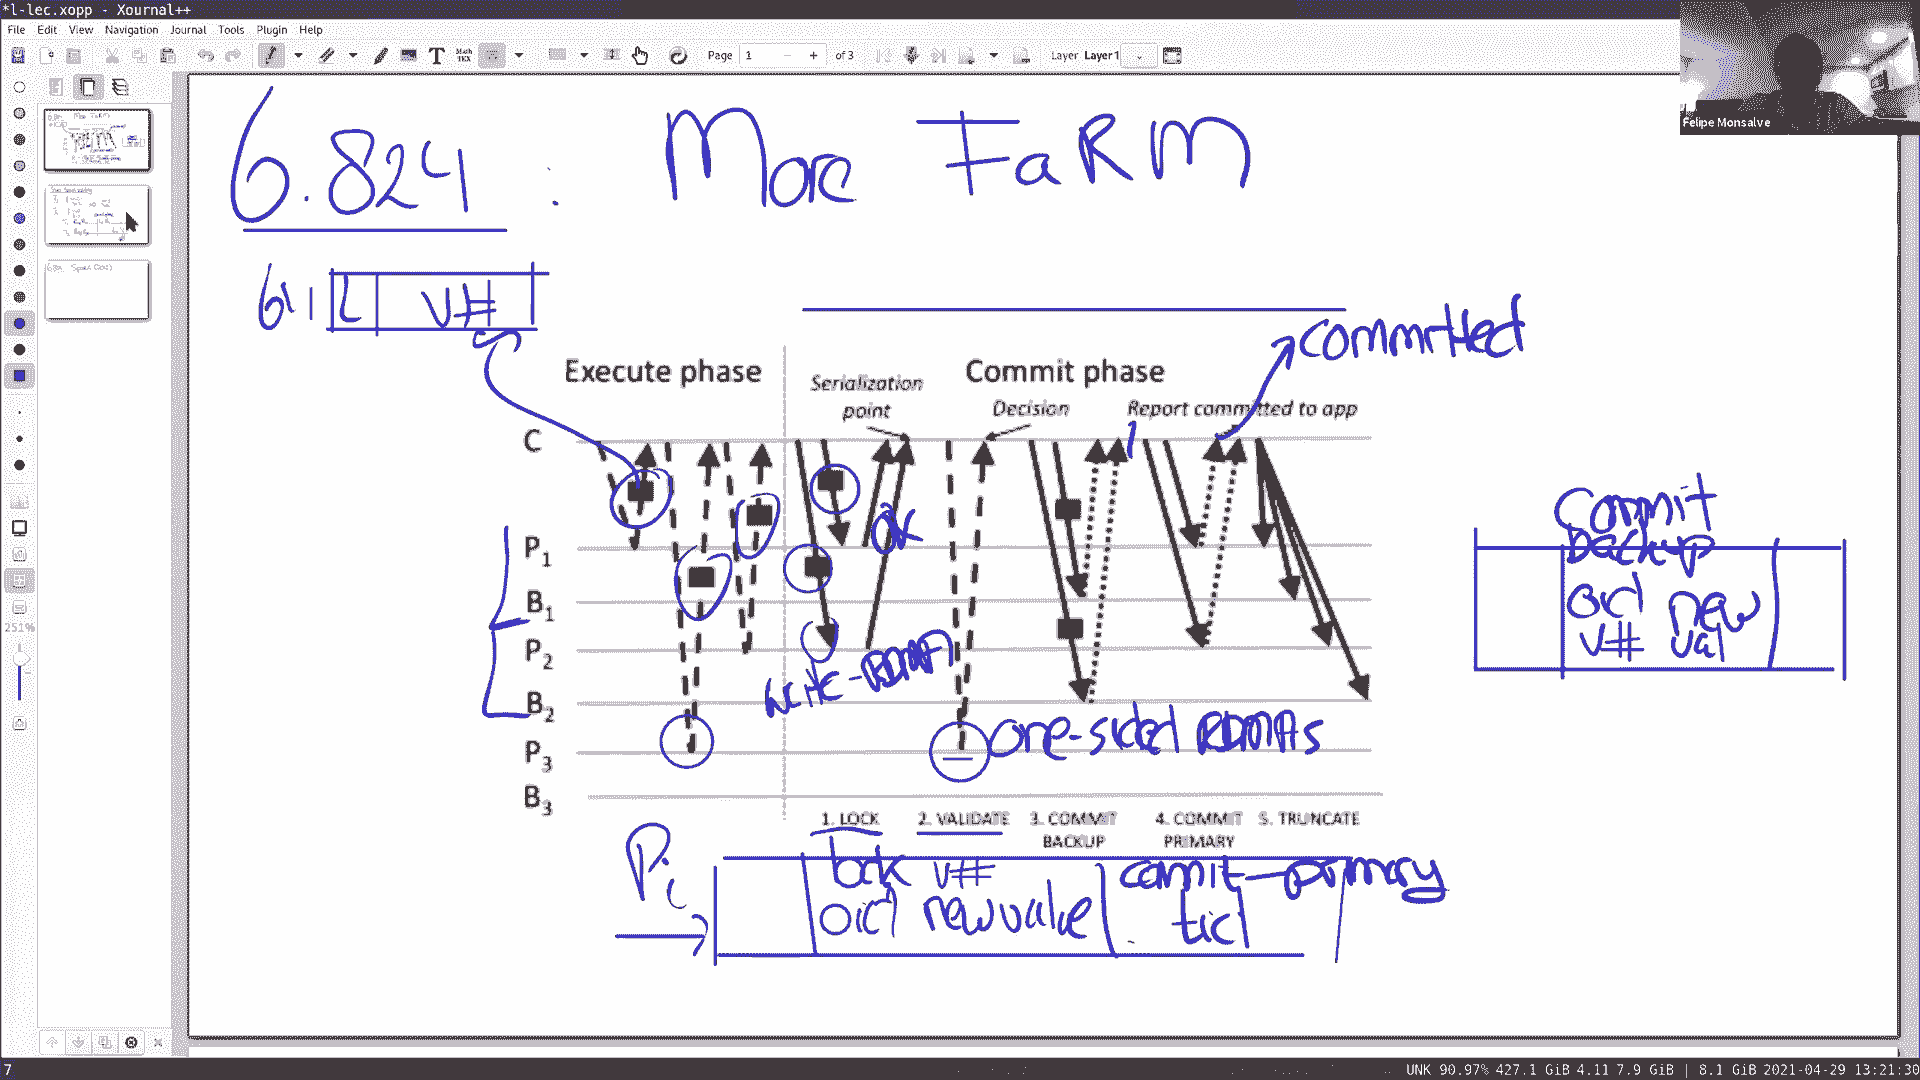 *l-lec.xopp - Xournal++
File Edit View Navigation Journal Tools Plugin Help
Page 1 - + of 3 Layer Layer1
Felipe Monsalve
6.824 : More FaRM
64 L V#
committed
Execute phase
Serialization point
Commit phase
Decision
Report committed to app
C
P1
B1
P2
B2
P3
B3
OK
write-RDMA
one-sided RDMAs
1. LOCK 2. VALIDATE 3. COMMIT BACKUP 4. COMMIT PRIMARY 5. TRUNCATE
Pi
lock v#
oid new value
commit-primary
tid
Commit
backup
oid new
v# val
251%
7
UNK 90.97% 427.1 GiB 4.11 7.9 GiB | 8.1 GiB 2021-04-29 13:21:30